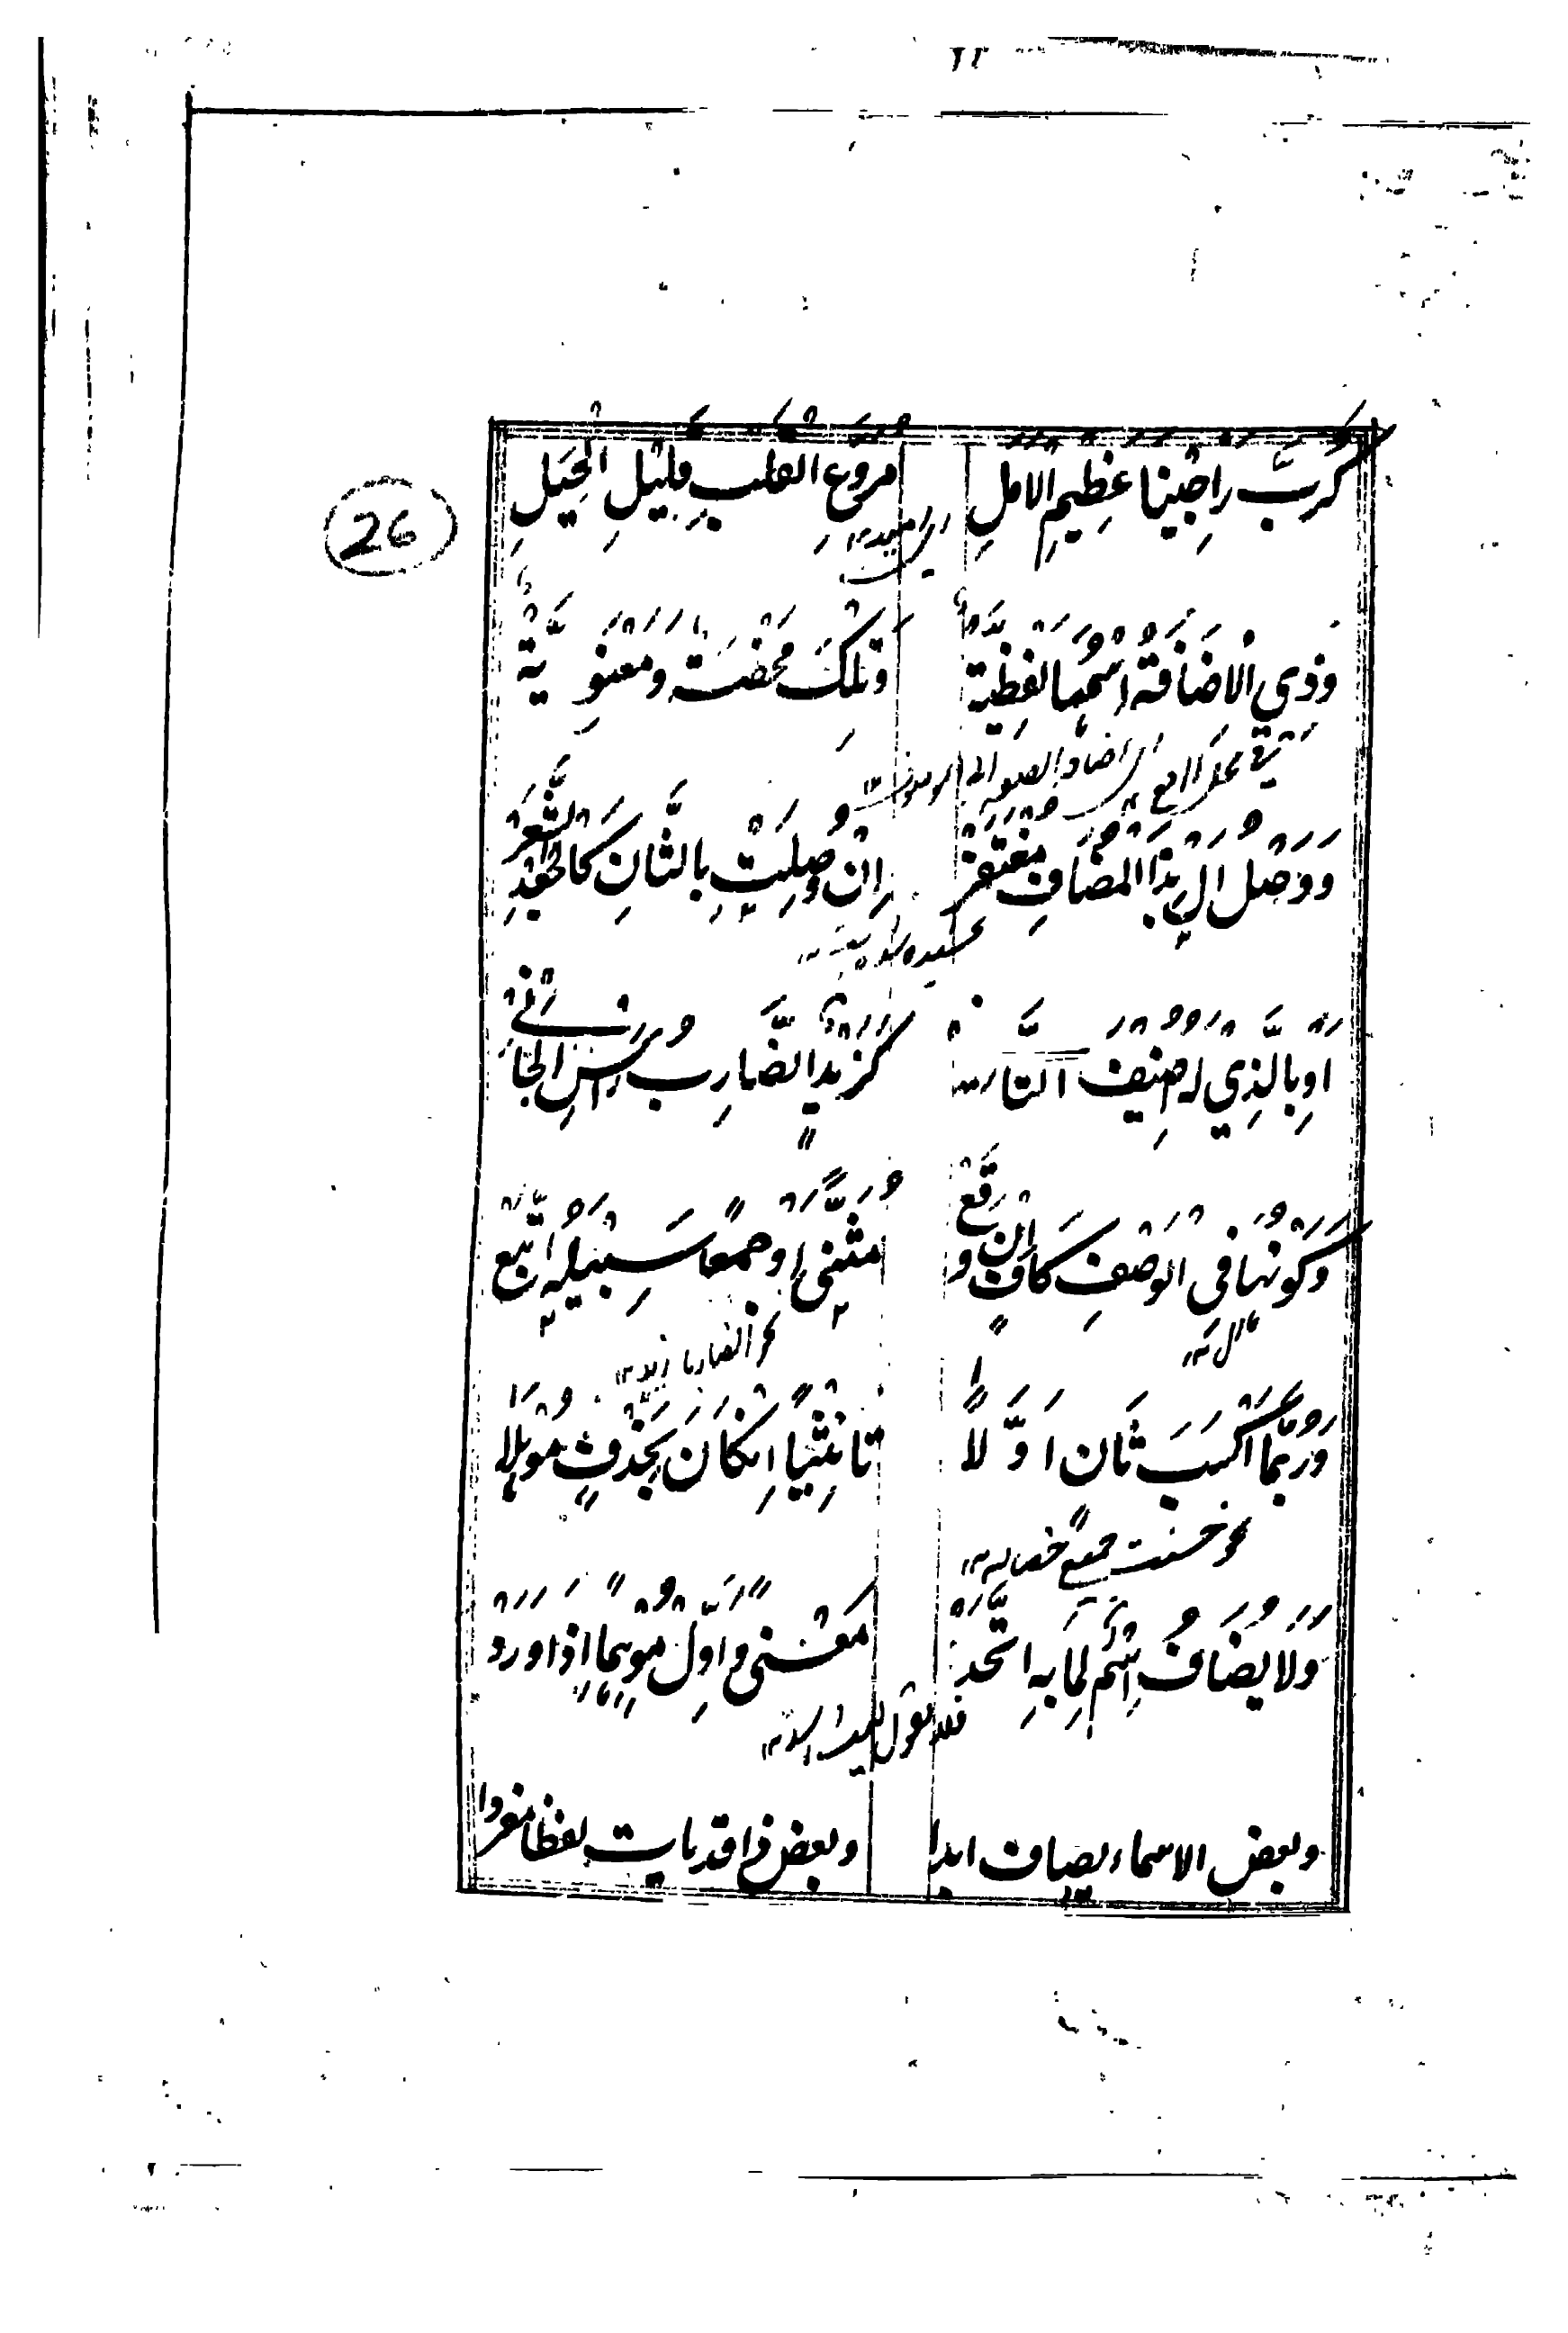 26
كَرُبَّ رَاجِينَا عَظِيمِ الْاَمَلِ مُرَوَّعِ الْقَلْبِ قَلِيْلِ الْحِيَلِ
وَذِي الْاِضَافَةُ اِسْمُهَا لَفْظِيَّةٌ وَتِلْكَ مَحْضَةٌ وَمَعْنَوِيَّةٌ
وَوَصْلُ اَلْ بِذَا الْمُضَافِ مُغْتَفَرْ اِنْ وُصِلَتْ بِالثَّانِ كَالْجَعْدِ الشَّعَرْ
اَوْ بِالَّذِي لَهُ اُضِيْفَ الثَّانِيْ كَزَيْدٌ الضَّارِبُ رَأْسِ الْجَانِيْ
وَكَوْنُهَا فِي الْوَصْفِ كَافٍ اِنْ وَقَعْ مُثَنًّى اَوْ جَمْعًا سَبِيْلَهُ اتَّبَعْ
نحو الضاربا زيد
وَرُبَّمَا اَكْسَبَ ثَانٍ اَوَّلًا تَانِيْثًا اِنْ كَانَ بِحَذْفٍ مُوْهَلَا
نحو حسنت جميع خصاله
وَلَا يُضَافُ اِسْمٌ لِمَا بِهِ اتَّحَدْ مَعْنًى وَاَوِّلْ مُوْهِمًا اِذَا وَرَدْ
وبعض الاسماء يضاف ابدا وبعض ذا قد يات لفظا مفردا